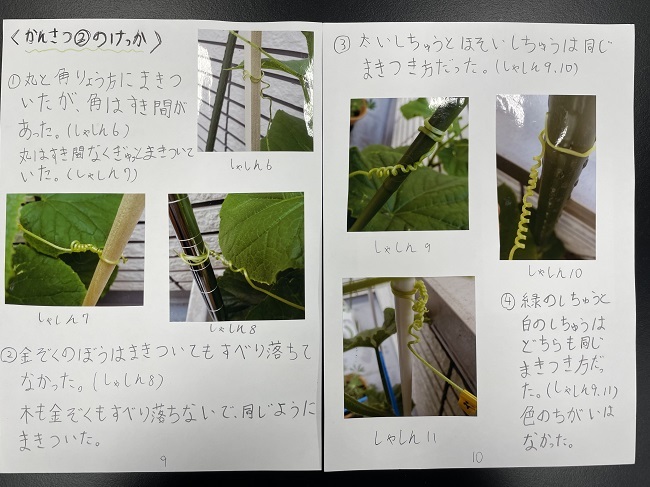 〈かんさつ②のけっか〉
①丸と角りょう方にまきつ
いたが、角はすき間が
あった。(しゃしん6)
丸はすき間なくぎゅっとまきついて
いた。(しゃしん7)
しゃしん6
しゃしん7
しゃしん8
②金ぞくのぼうはまきついてもすべり落ちて
なかった。(しゃしん8)
木も金ぞくもすべり落ちないで、同じように
まきついた。
9
③太いしちゅうとほそいしちゅうは同じ
まきつき方だった。(しゃしん9.10)
しゃしん9
しゃしん10
しゃしん11
④緑のしちゅうと
白のしちゅうは
どちらも同じ
まきつき方だっ
た。(しゃしん9.11)
色のちがいは
なかった。
10